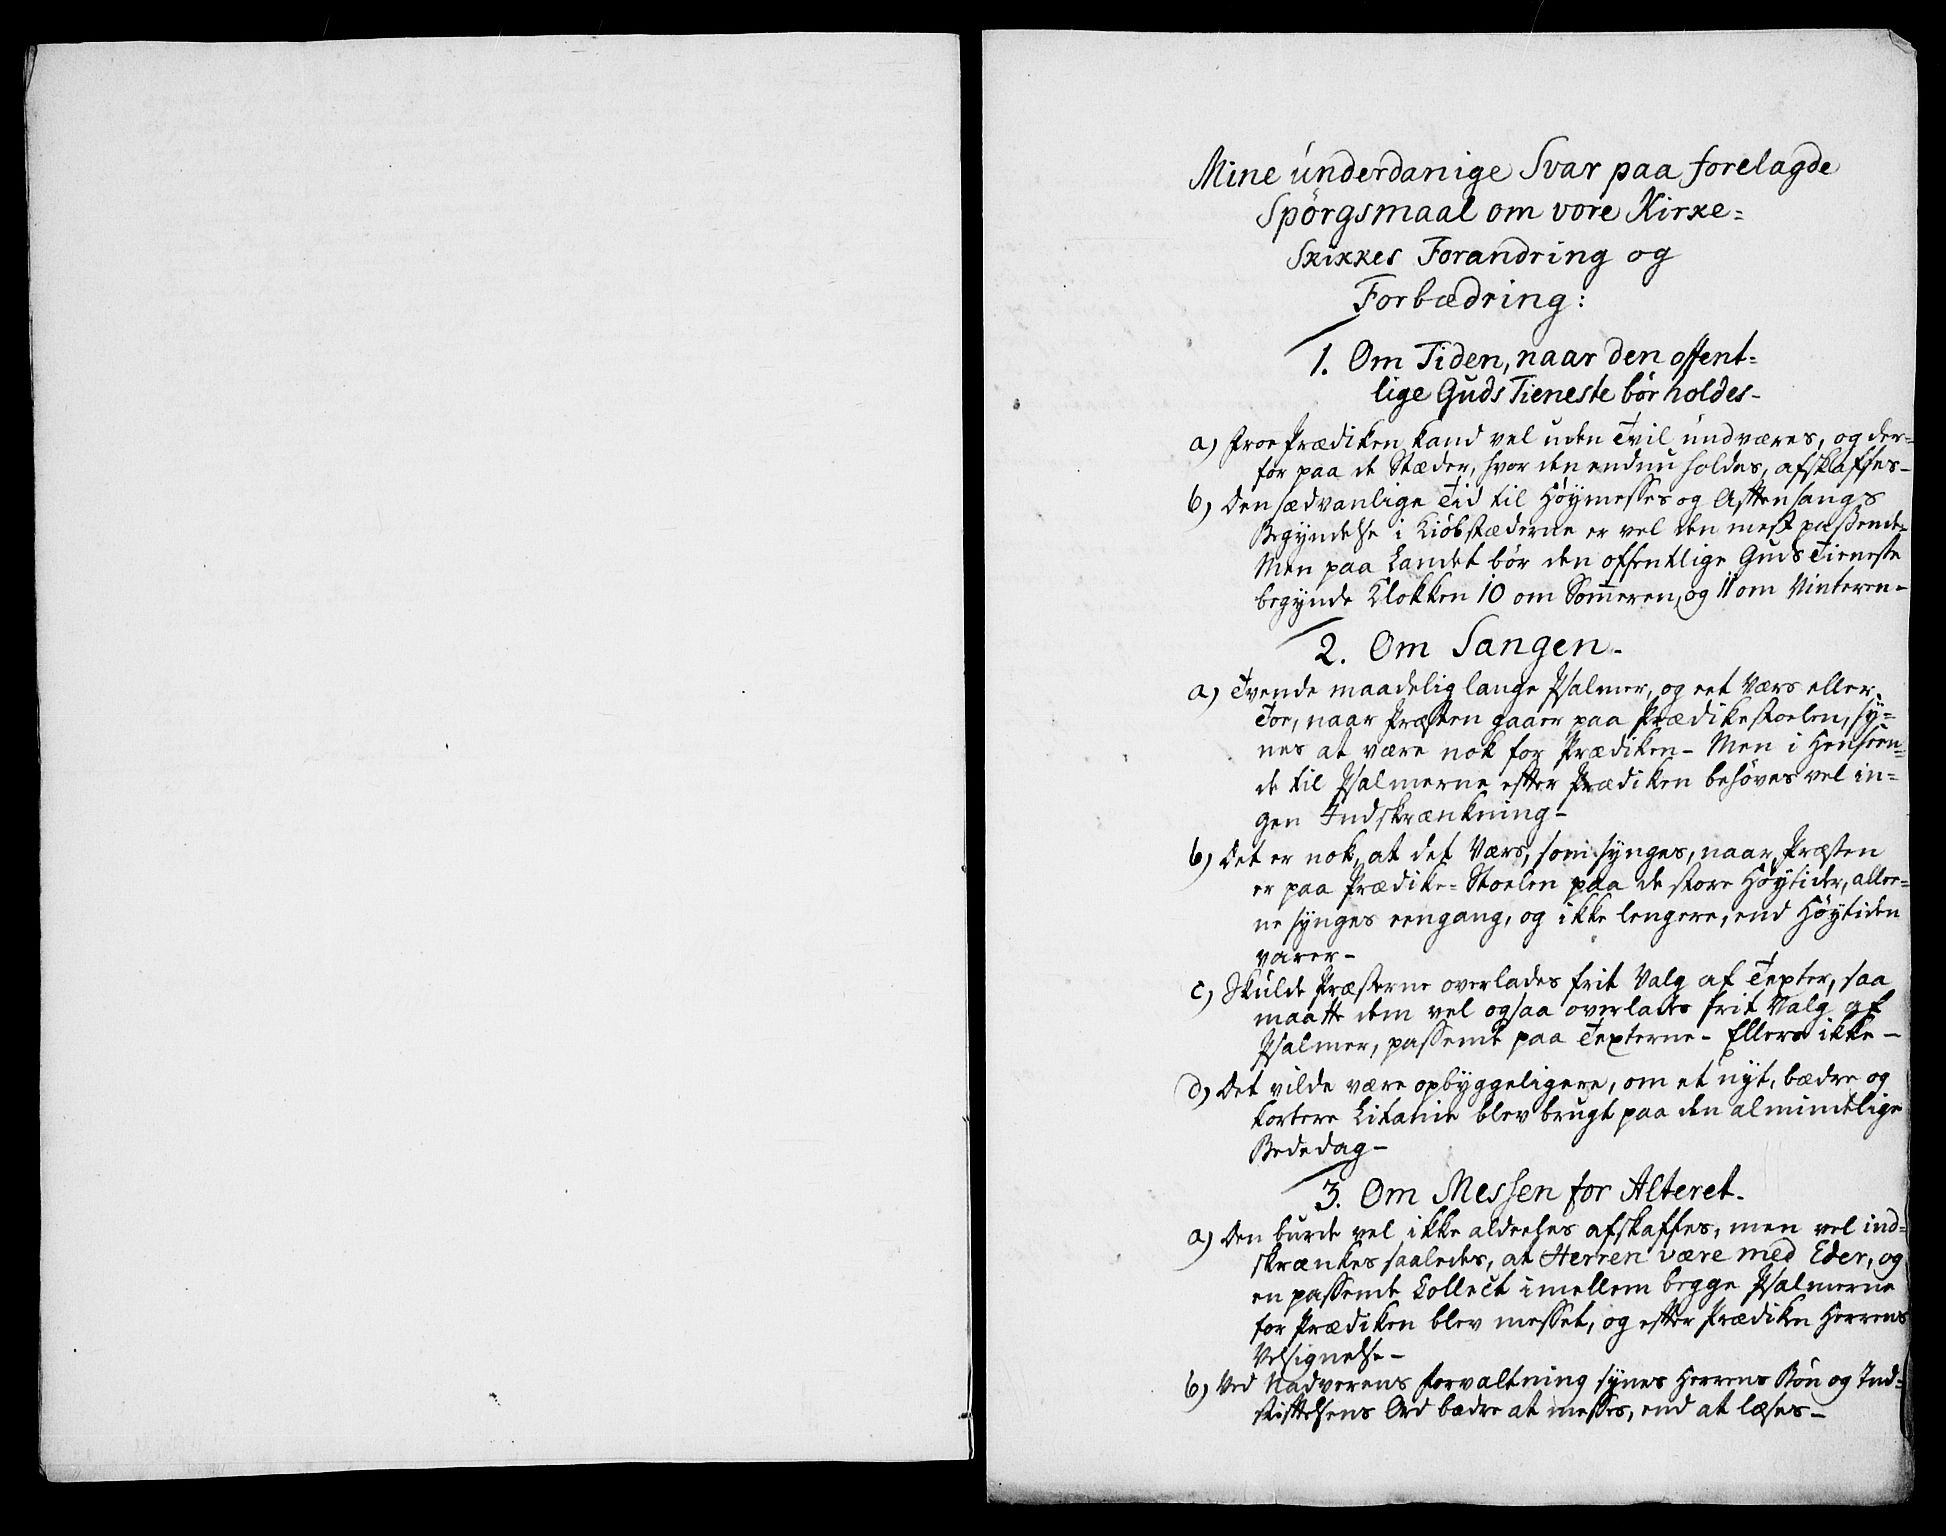 Mine underdanige Svar paa forelagde
Spörgsmaal om vore Kirke=
Skikkes Forandring og
Forbædring:
1. Om Tiden, naar den offent=
lige Guds Tieneste bör holdes-
a) Froe Prædiken kand vel uden Tvil undværes, og der=
for paa de Stæder, hvor den endnu holdes, afskaffes-
b) Den sædvanlige Tid til Höymesses og Afftensangs
Begyndelse i Kiöbstæderne er vel den mest passende-
Men paa Landet bör den offentlige Guds Tieneste
begynde Klokken 10 om Som̄eren, og 11 om Vinteren-
2. Om Sangen-
a) Tvende maadelig lange Psalmer, og eet Værs eller
Toe, naar Præsten gaaer paa Prædikestoelen, sy=
nes at være nok for Prædiken- Men i Henseen=
de til Psalmerne efter Prædiken behöves vel in=
gen Indskrænkning-
b) Det er nok, at det Værs, som synges, naar Præsten
er paa Prædike=Stoelen paa de store Höytider, alle=
ne synges eengang, og ikke lengere, end Höytiden
varer-
c) Skulde Præsterne overlades frit Valg af Texter, saa
maatte dem vel ogsaa overlades frit Valg af
Psalmer, passende paa Texterne- Ellers ikke-
d) Det vilde være opbyggeligere, om et nyt, bædre og
kortere Litanie blev brugt paa den almindelige
Bededag-
3. Om Messen for Alteret-
a) Den burde vel ikke aldeeles afskaffes, men vel ind=
skrænkes saaledes, at Herren være med Eder, og
en passende Collect imellem begge Psalmerne
for Prædiken blev messet, og efter Prædiken Herrens
Velsignelse-
b) Ved Nadverens Forvaltning synes Herrens Bön og Ind=
stiftelsens Ord bædre at messes, end at læses-